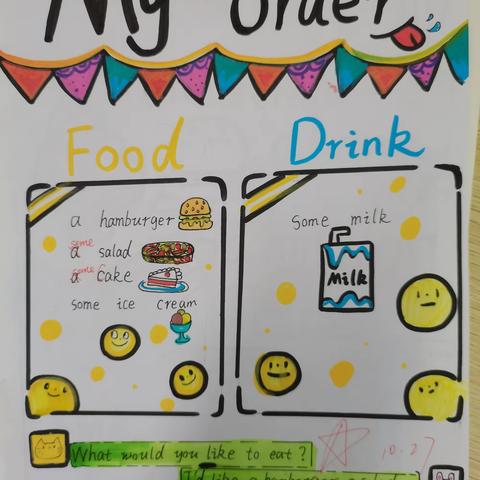 My order
Food
Drink
a hamburger
some
a salad
some
a cake
some ice cream
some milk
Milk
What would you like to eat?
10.27
I'd like a hamburger